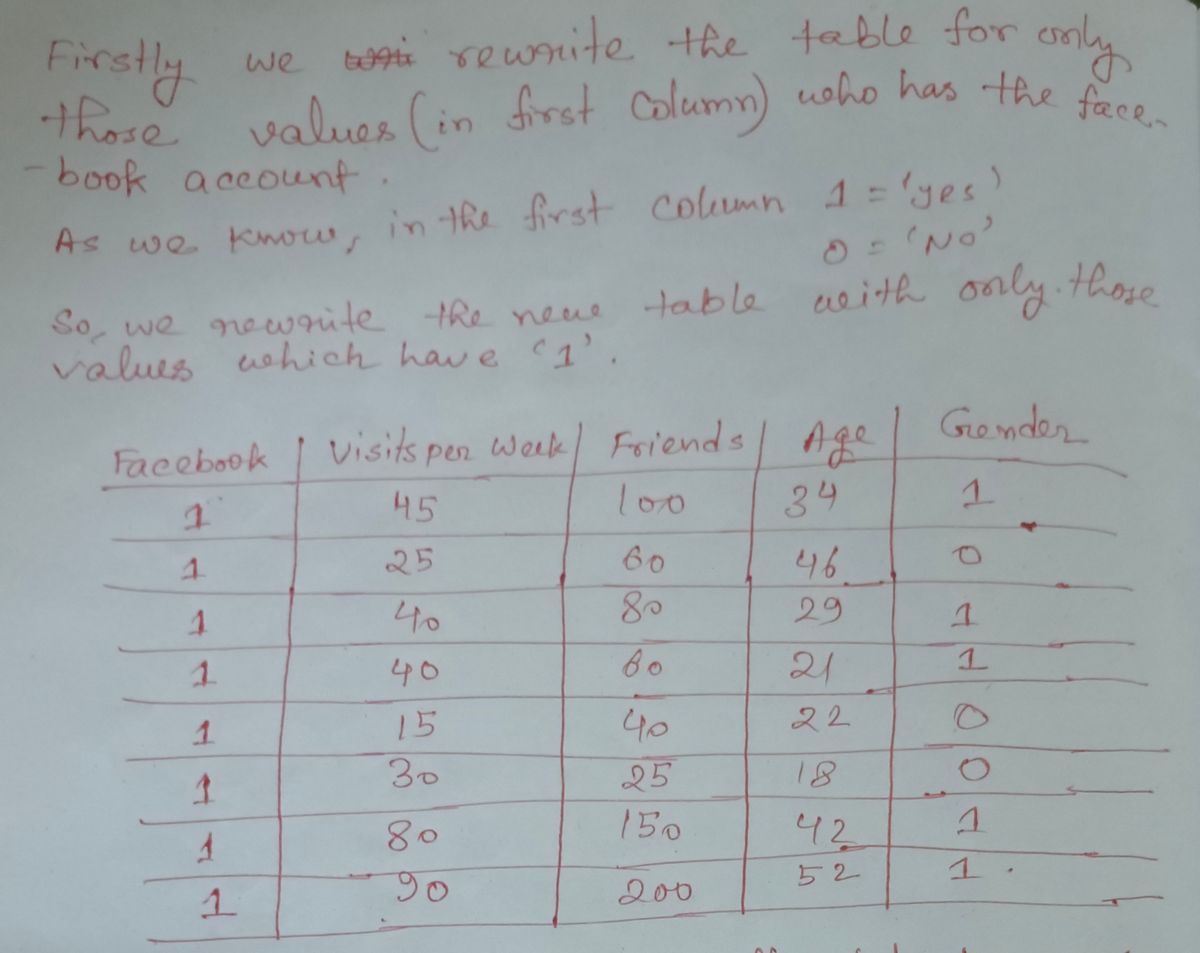 Firstly we rewrite the table for only
those values (in first column) who has the face-
-book account.
As we know, in the first column 1 = 'yes'
0 = 'No'
So, we rewrite the new table with only those
values which have '1'.
Facebook Visits per Week Friends Age Gender
1 45 100 34 1
1 25 60 46 0
1 40 80 29 1
1 40 60 21 1
1 15 40 22 0
1 30 25 18 0
1 80 150 42 1
1 90 200 52 1